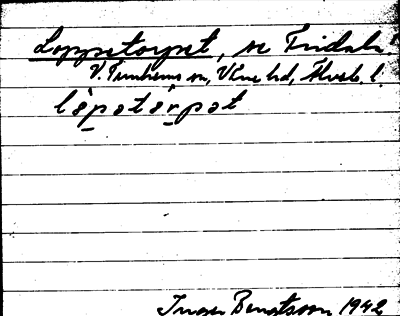 Loppetorpet, se Fridal
V. Tunhems sn, Väne hd, Älvsb. l.
lɵ̀patɵ̀rpat
Inger Bengtsson 1942